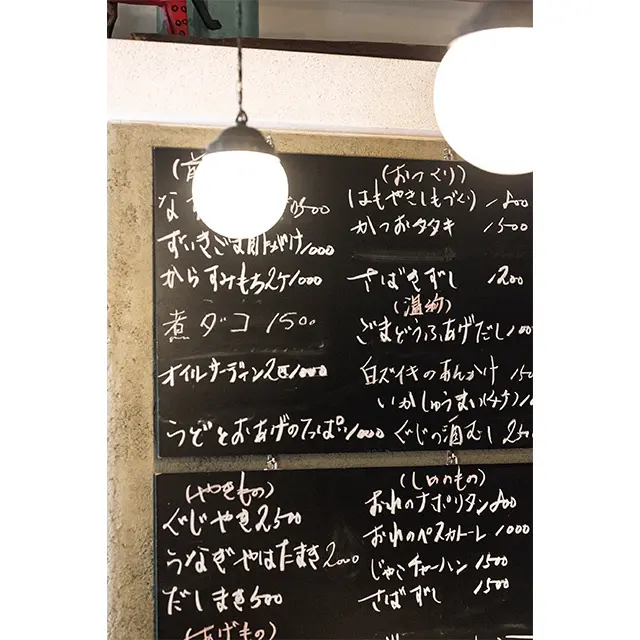 (前
な 500
ずいきごま酢上がけ1000
からすみもち2ケ1000
煮ダコ 1500
オイルサーディン2匹1000
うどとおあげのてっぱい1000
(おつくり)
はもやきしもづくり 1800
かつおタタキ 1500
さばきずし 1200
(温物)
ごまどうふあげだし100
白ズイキのあんかけ 150
いかしゅうまい(4ケ)10
ぐじの酒むし 250
(やきもの)
ぐじやき2500
うなぎやはたまき2000
だしまき500
(あげもの)
(しめのもの)
おれのナポリタン800
おれのペスカトーレ 1000
じゃこチャーハン 1500
さばずし 1500